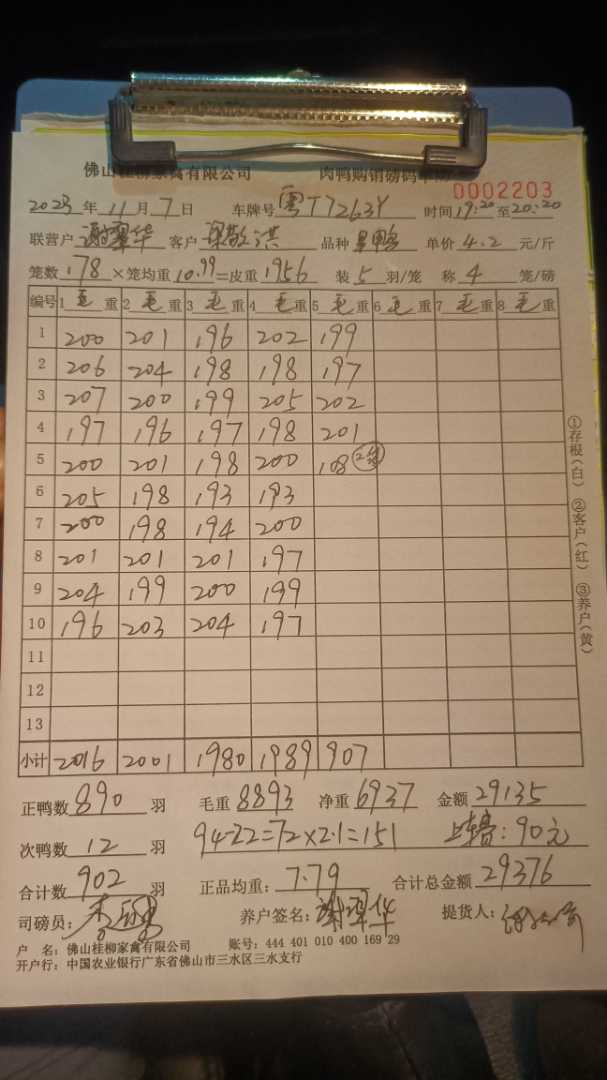 佛山桂柳家禽有限公司 肉鸭购销磅码单
0002203
2023年11月7日 车牌号 粤T7263Y 时间19:20至20:20
联营户 谢翠华 客户 梁敬洪 品种 单价4.2元/斤
笼数178×笼均重10.99=皮重1956 装5羽/笼 称4笼/磅
编号 1毛重 2毛重 3毛重 4毛重 5毛重 6毛重 7毛重 8毛重
1 200 201 196 202 199
2 206 204 198 198 197
3 207 200 199 205 202
4 197 196 197 198 201
5 200 201 198 200 108
6 205 198 193 193
7 200 198 194 200
8 201 201 201 197
9 204 199 200 199
10 196 203 204 197
11
12
13
小计 2016 2001 1980 1989 907
①存根(白) ②客户(红) ③养户(黄)
正鸭数890羽 毛重8893 净重6937 金额29135
次鸭数12羽 94-22=72×2.1=151 上车费:90元
合计数902羽 正品均重:7.79 合计总金额29376
司磅员: 养户签名:谢翠华 提货人:
户 名:佛山桂柳家禽有限公司 账号:444 401 010 400 169 29
开户行:中国农业银行广东省佛山市三水区三水支行